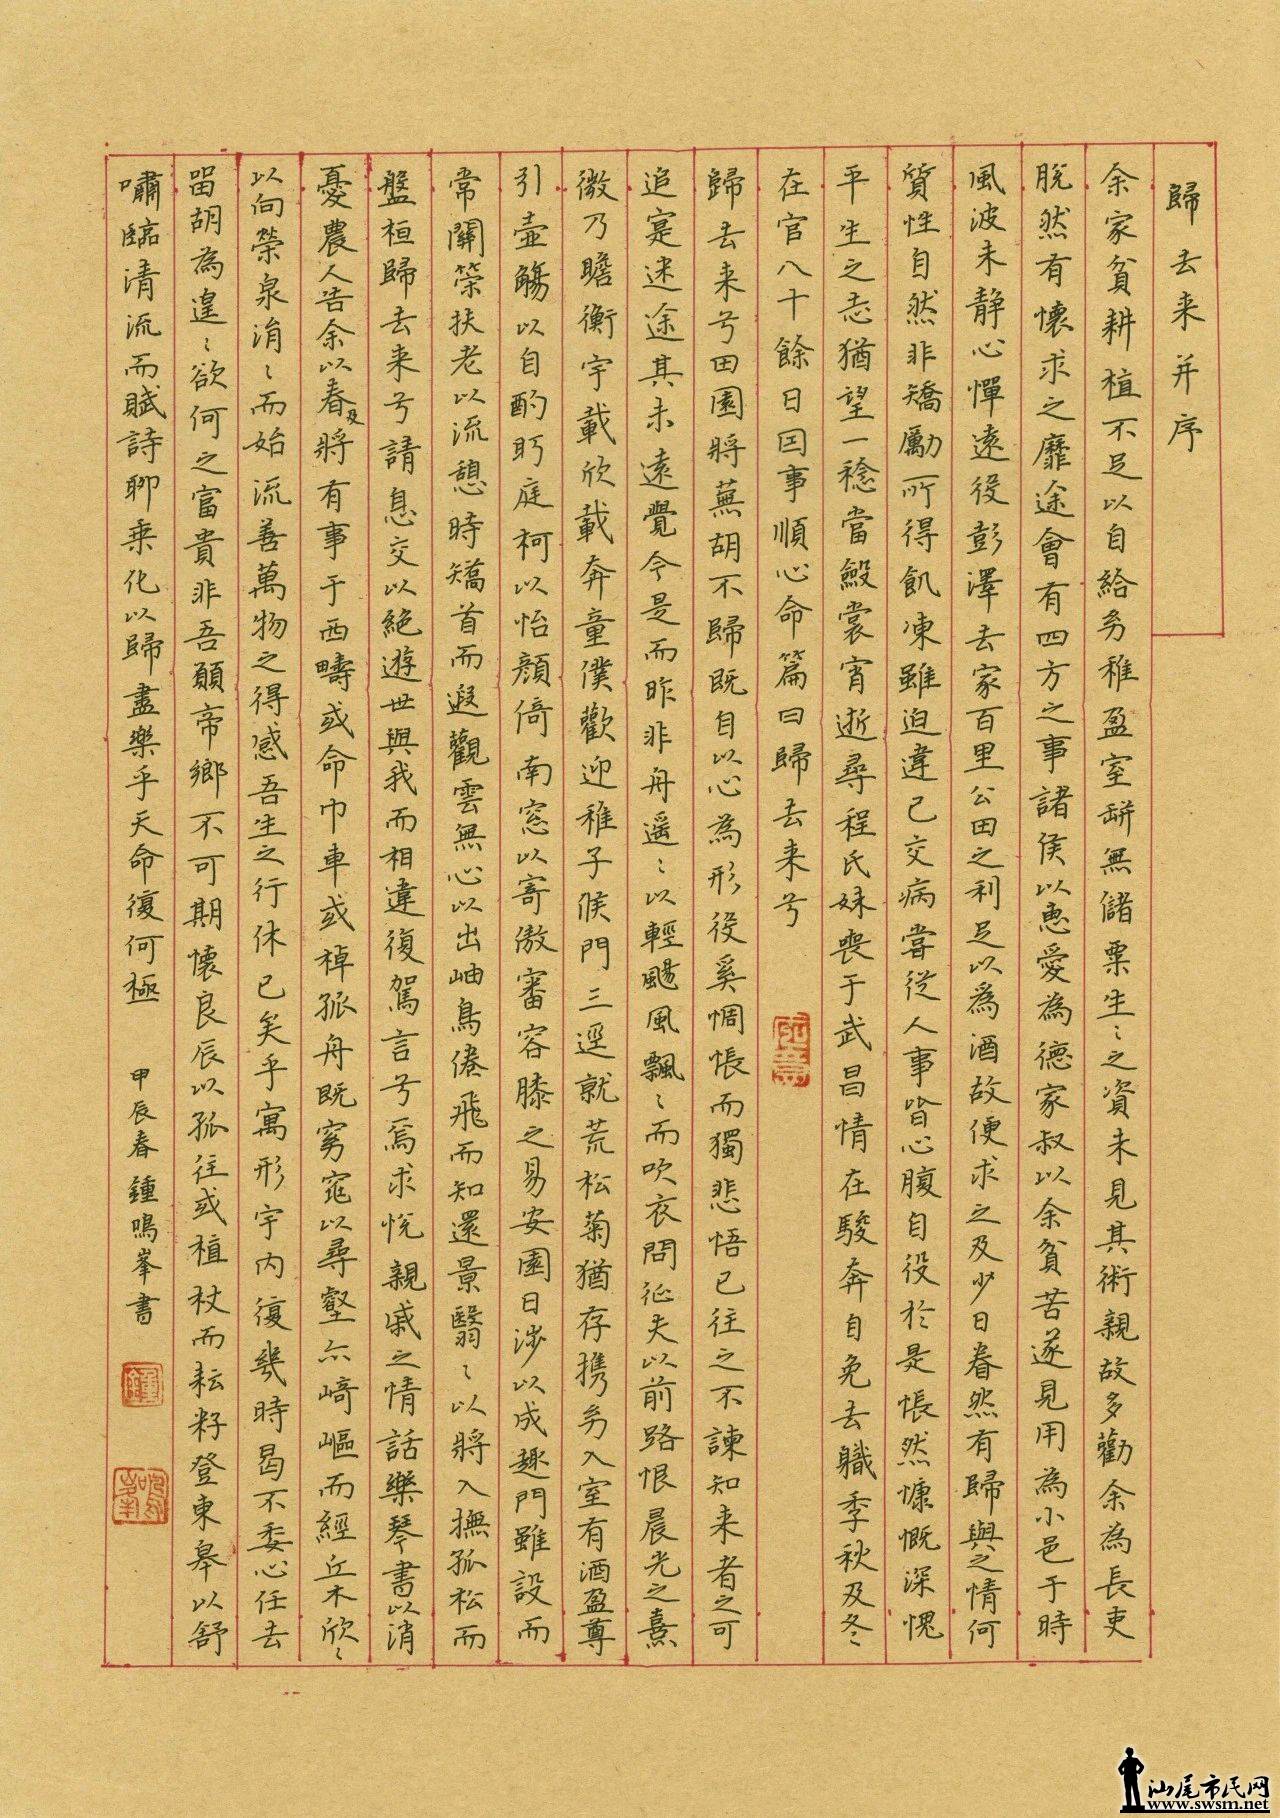 歸去来并序
余家貧耕植不足以自給㓜稚盈室缾無儲粟生〻之資未見其術親故多勸余為長吏
脫然有懷求之靡途會有四方之事諸侯以惠愛為德家叔以余貧苦遂見用為小邑于時
風波未靜心憚遠役彭澤去家百里公田之利足以為酒故便求之及少日眷然有歸與之情何
質性自然非矯勵所得飢凍雖迫違已交病嘗從人事皆心腹自役於是悵然慷慨深愧
平生之志猶望一稔當斂裳宵逝尋程氏妹喪于武昌情在駿奔自免去職季秋及冬〻
在官八十餘日因事順心命篇曰歸去来兮
歸去来兮田園將蕪胡不歸既自以心為形役奚惆悵而獨悲悟已往之不諫知来者之可
追寔迷途其未遠覺今是而昨非舟遥〻以輕颺風飄〻而吹衣問征夫以前路恨晨光之熹
微乃瞻衡宇載欣載奔童僕歡迎稚子候門三逕就荒松菊猶存携㓜入室有酒盈尊
引壺觴以自酌眄庭柯以怡顔倚南窓以寄傲審容膝之易安園日涉以成趣門雖設而
常關策扶老以流憩時矯首而遐觀雲無心以出岫鳥倦飛而知還景翳〻以將入撫孤松而
盤桓歸去来兮請息交以絕遊世與我而相違復駕言兮焉求悦親戚之情話樂琴書以消
憂農人告余以春及將有事于西疇或命巾車或棹孤舟既窈窕以尋壑亦崎嶇而經丘木欣〻
以向榮泉涓〻而始流善萬物之得感吾生之行休已矣乎寓形宇内復幾時曷不委心任去
留胡為遑〻欲何之富貴非吾願帝鄉不可期懷良辰以孤往或植杖而耘籽登東皋以舒
嘯臨清流而賦詩聊乗化以歸盡樂乎天命復何極 甲辰春鍾鳴峯書
汕尾市民网
www.swsm.net